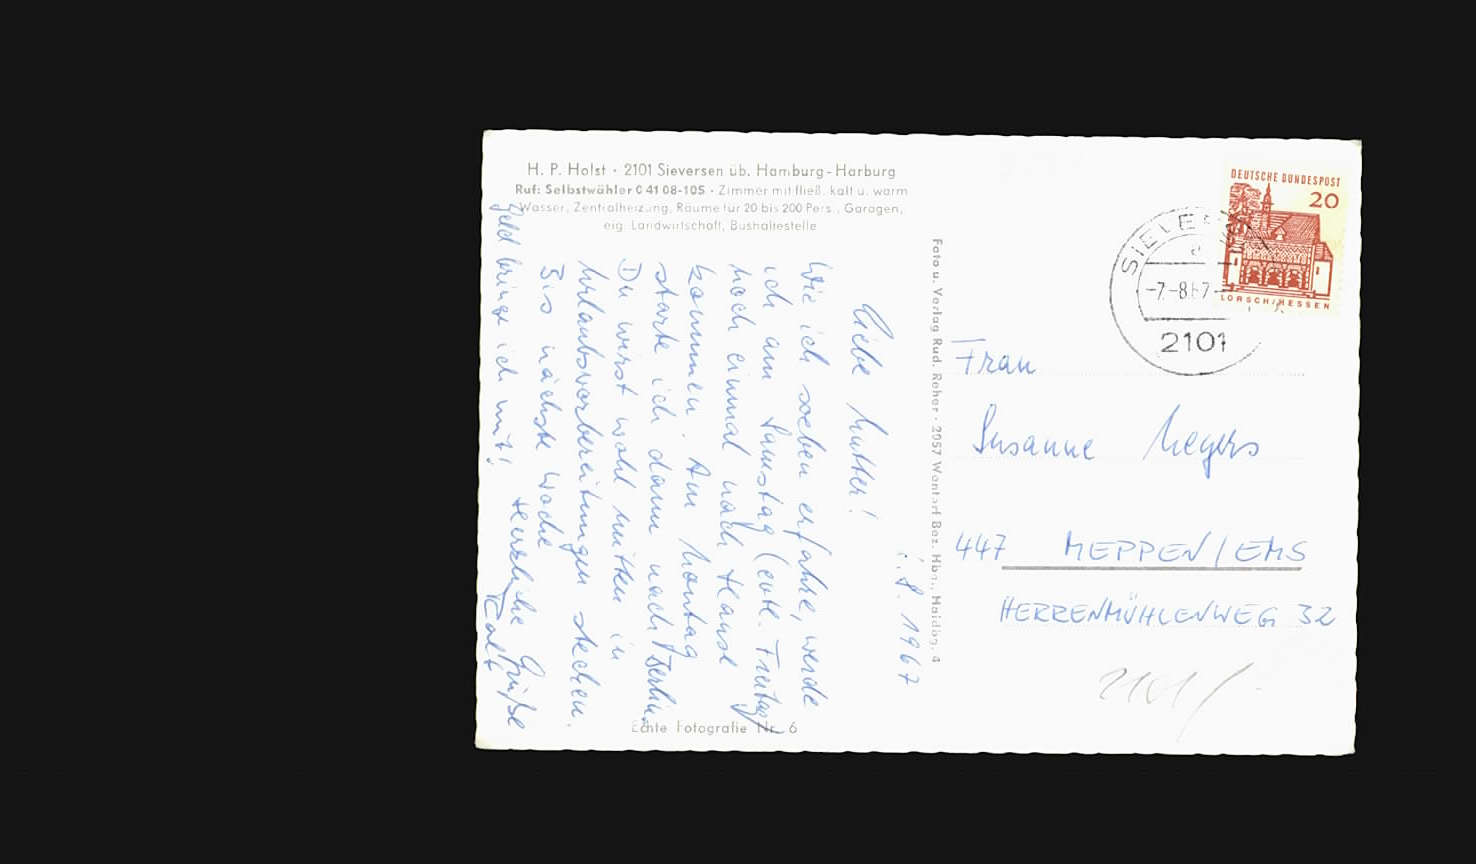 H. P. Holst · 2101 Sieversen üb. Hamburg-Harburg
Ruf: Selbstwähler 0 41 08-105 · Zimmer mit fließ. kalt u. warm
Wasser, Zentralheizung, Räume für 20 bis 200 Pers., Garagen,
eig. Landwirtschaft, Bushaltestelle
8. 1967
Liebe Mutter!
Wie ich soeben erfahre, werde
ich am Samstag (evtl. Freitag)
noch einmal nach Hause
kommen. Am Montag
starte ich dann nach Berlin.
Du wirst wohl mitten in
Urlaubsvorbereitungen stecken.
Bis nächste Woche
Herzliche Grüße
Ralf
Geld bringe ich mit!
Echte Fotografie Nr. 6
Foto u. Verlag Rud. Reher · 2057 Wentorf Bez. Hbg., Haidbg. 4
DEUTSCHE BUNDESPOST
20
LORSCH/HESSEN
-7.-8.67-
2101
Frau
Susanne Meyers
447 MEPPEN/EMS
HERRENMÜHLENWEG 32
2101/